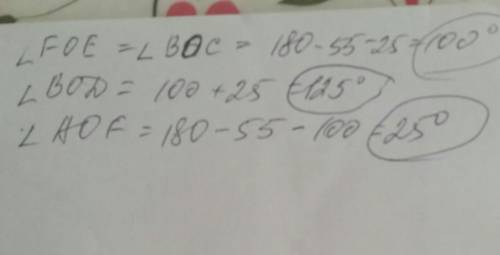 ∠FOE = ∠BOC = 180-55-25=100°
∠BOD = 100+25=125°
∠AOF = 180-55-100=25°